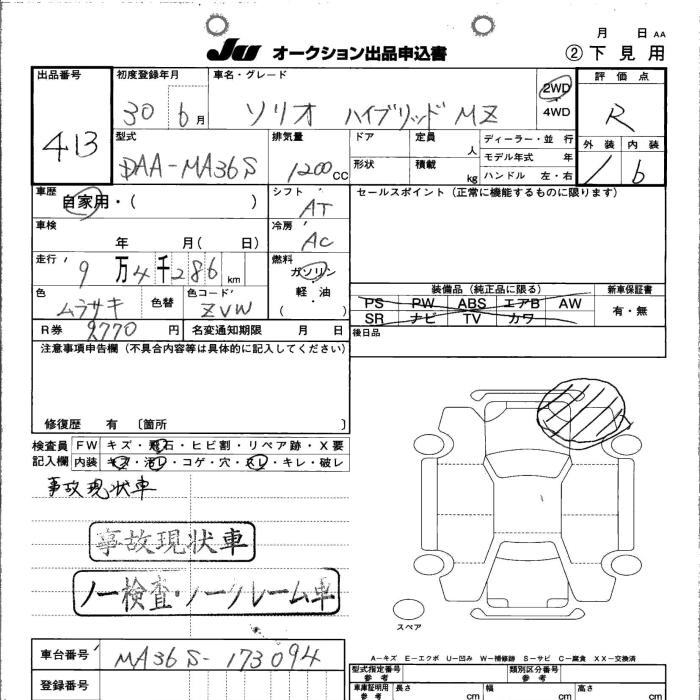 月 日 AA
JU オークション出品申込書 ② 下見用
出品番号 初度登録年月 車名・グレード 評価点
413 30 6月 ソリオ ハイブリッド MZ 2WD 4WD R
型式 排気量 ドア 定員 人 ディーラー・並行 外装 内装
DAA-MA36S 1200cc 形状 積載 kg モデル年式 年 1 6
ハンドル 左・右
車歴 シフト セールスポイント (正常に機能するものに限ります)
自家用・( ) AT
車検 冷房
年 月( 日) AC
走行 燃料
9万4千286km ガソリン
軽・油
( )
装備品 (純正品に限る) 新車保証書
色 色替 色コード
ムラサキ ZVW
PS PW ABS エアB AW 有・無
SR ナビ TV カワ
R券 9770円 名変通知期限 月 日 後日品
注意事項申告欄 (不具合内容等は具体的に記入してください)
修復歴 有 〔箇所 〕
検査員 FW キズ・飛石・ヒビ割・リペア跡・X要
記入欄 内装 キズ・汚レ・コゲ・穴・スレ・キレ・破レ
事故現状車
事故現状車
ノー検査・ノークレーム車
スペア
A−キズ E−エクボ U−凹み W−補修跡 S−サビ C−腐食 XX−交換済
車台番号 MA36S-173094
型式指定番号 参考 類別区分番号 参考
登録番号
車庫証明用 参考 長さ cm 幅 cm 高さ cm